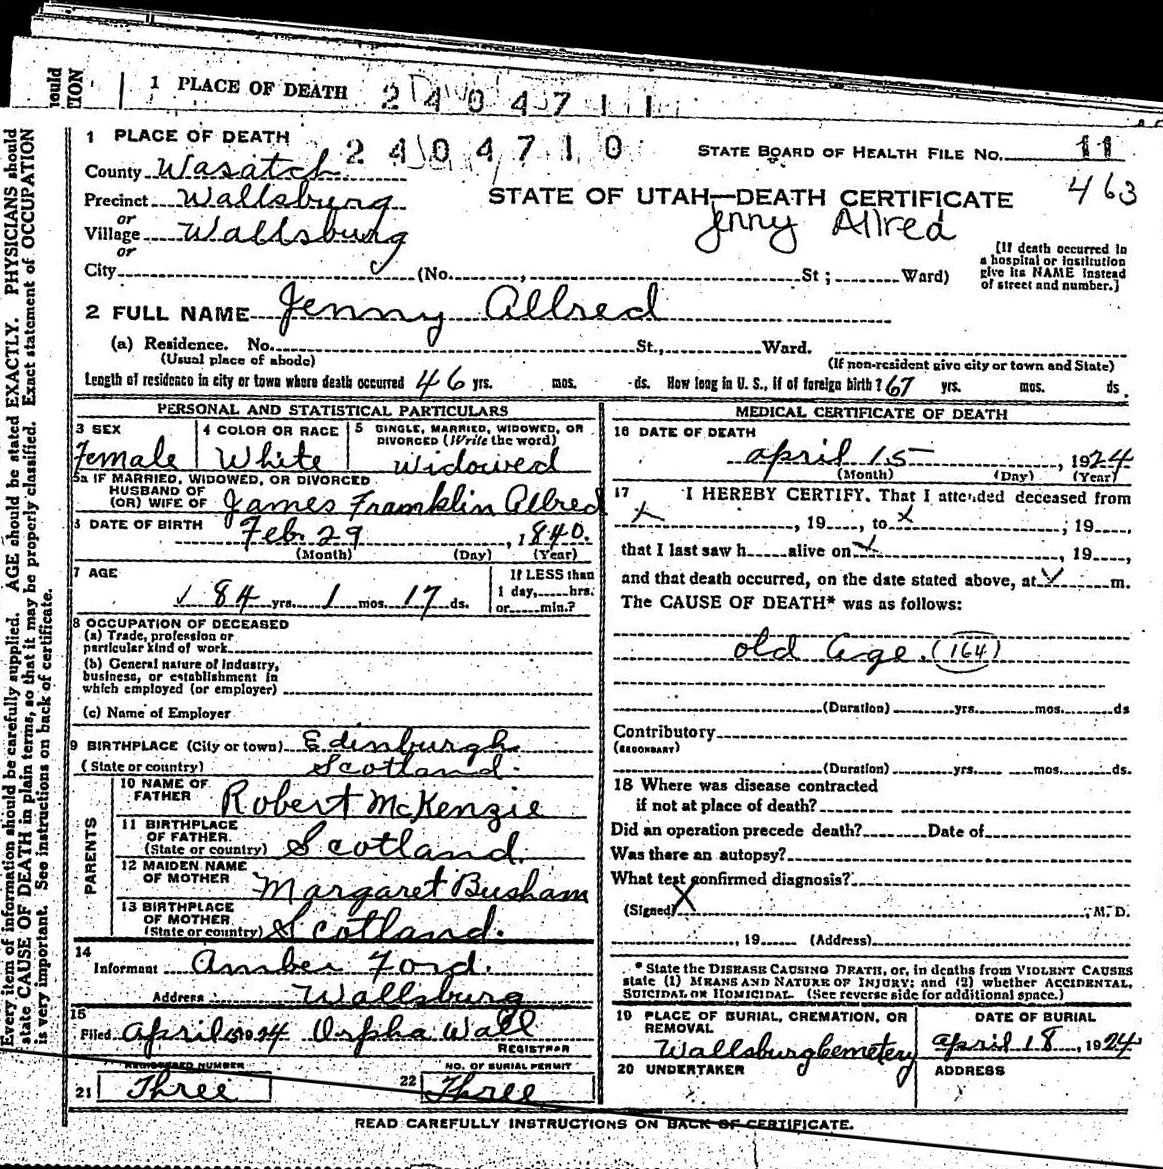 ould
TION
1 PLACE OF DEATH
2404711
Every item of information should be carefully supplied. AGE should be stated EXACTLY. PHYSICIANS should
state CAUSE OF DEATH in plain terms, so that it may be properly classified. Exact statement of OCCUPATION
is very important. See instructions on back of certificate.
1 PLACE OF DEATH
2404710
STATE BOARD OF HEALTH FILE NO. 11
463
County Wasatch
Precinct Wallsburg
or
Village Wallsburg
or
City (No. , St ; Ward)
STATE OF UTAH—DEATH CERTIFICATE
Jenny Allred
[If death occurred in
a hospital or institution
give its NAME instead
of street and number.]
2 FULL NAME Jenny Allred
(a) Residence. No. St., Ward.
(Usual place of abode) (If non-resident give city or town and State)
Length of residence in city or town where death occurred 46 yrs. mos. ds. How long in U. S., if of foreign birth? 67 yrs. mos. ds.
PERSONAL AND STATISTICAL PARTICULARS
3 SEX
Female
4 COLOR OR RACE
White
5 SINGLE, MARRIED, WIDOWED, OR
DIVORCED (Write the word)
Widowed
5a IF MARRIED, WIDOWED, OR DIVORCED
HUSBAND OF
(OR) WIFE OF James Franklin Allred
6 DATE OF BIRTH
Feb. 29, 1840.
(Month) (Day) (Year)
7 AGE
84 yrs. 1 mos. 17 ds.
If LESS than
1 day, hrs.
or min.?
8 OCCUPATION OF DECEASED
(a) Trade, profession or
particular kind of work
(b) General nature of industry,
business, or establishment in
which employed (or employer)
(c) Name of Employer
9 BIRTHPLACE (City or town) Edinburgh
(State or country) Scotland.
PARENTS
10 NAME OF
FATHER Robert McKenzie
11 BIRTHPLACE
OF FATHER
(State or country) Scotland.
12 MAIDEN NAME
OF MOTHER Margaret Busham
13 BIRTHPLACE
OF MOTHER
(State or country) Scotland.
14
Informant Amber Ford.
Address Wallsburg
15
Filed April 1924 Orpha Wall
REGISTRAR
REGISTERED NUMBER
21 Three
NO. OF BURIAL PERMIT
22 Three
MEDICAL CERTIFICATE OF DEATH
16 DATE OF DEATH
April 15, 1924
(Month) (Day) (Year)
17 I HEREBY CERTIFY, That I attended deceased from
x , 19 , to x ; 19 ,
that I last saw h alive on , 19 ,
and that death occurred, on the date stated above, at m.
The CAUSE OF DEATH* was as follows:
old Age. (164)
(Duration) yrs. mos. ds
Contributory
(SECONDARY)
(Duration) yrs. mos. ds.
18 Where was disease contracted
if not at place of death?
Did an operation precede death? Date of
Was there an autopsy?
What test confirmed diagnosis?
(Signed) X , M. D.
, 19 (Address)
* State the DISEASE CAUSING DEATH, or, in deaths from VIOLENT CAUSES
state (1) MEANS AND NATURE OF INJURY; and (2) whether ACCIDENTAL,
SUICIDAL OR HOMICIDAL. (See reverse side for additional space.)
19 PLACE OF BURIAL, CREMATION, OR
REMOVAL
Wallsburg Cemetery
DATE OF BURIAL
April 18, 1924
20 UNDERTAKER
ADDRESS
READ CAREFULLY INSTRUCTIONS ON BACK OF CERTIFICATE.